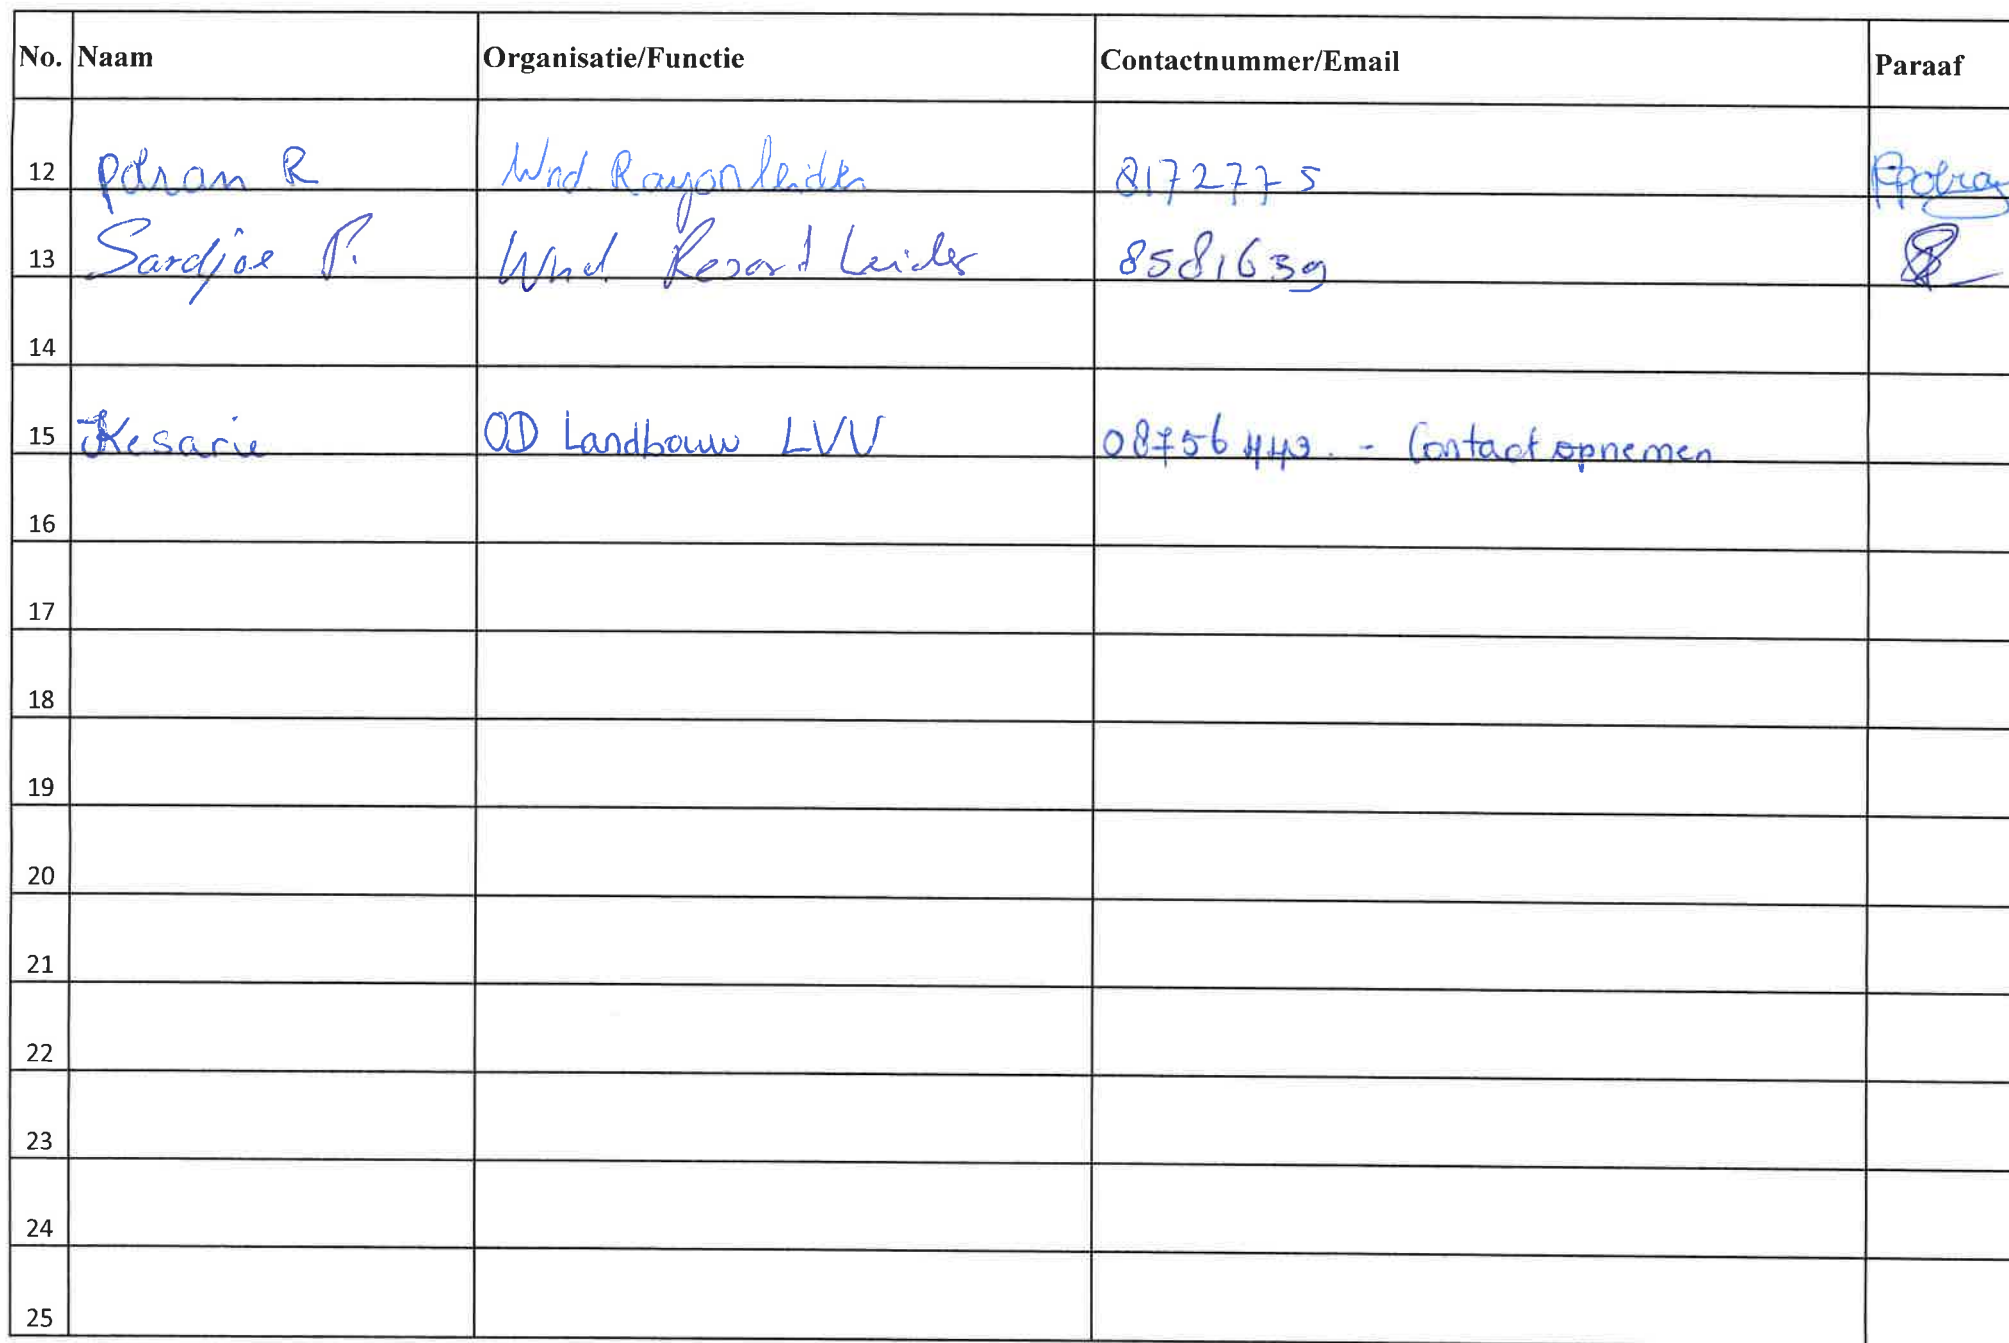 No. Naam Organisatie/Functie Contactnummer/Email Paraaf
12 Potran R Wnd. Rayonleider 8172775
13 Sardjoe P. Wnd Resort Leider 8581639
14
15 Kesarie OD Landbouw LVV 08756443. - Contact opnemen
16
17
18
19
20
21
22
23
24
25